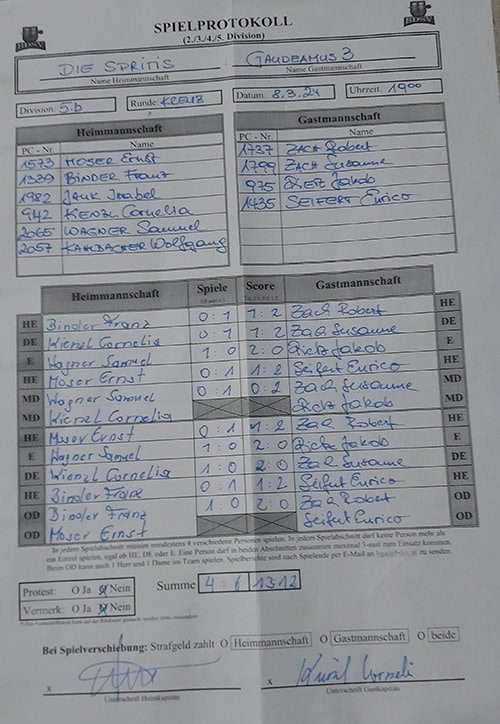 SPIELPROTOKOLL
(2./3./4./5. Division)
BDSV BDSV
DIE SPRITIS GAUDEAMUS 3
Name Heimmannschaft Name Gastmannschaft
Division: 5.b Runde: KREUZ Datum: 8.3.24 Uhrzeit: 19 00
Heimmannschaft Gastmannschaft
PC - Nr. Name PC - Nr. Name
1573 MOSER Ernst 1737 ZACH Robert
1339 BINDER Franz 1799 ZACH Susanne
1982 JAUK Isabel 975 Jakob
942 KIENZL Cornelia 1435 SEIFERT Enrico
2065 WAGNER Samuel
2057 Wolfgang
Heimmannschaft Spiele Score Gastmannschaft
HE Binder Franz 0 : 1 1 : 2 Zach Robert HE
DE Kienzl Cornelia 0 : 1 1 : 2 Zach Susanne DE
E Wagner Samuel 1 : 0 2 : 0 Jakob E
HE Moser Ernst 0 : 1 1 : 2 Seifert Enrico HE
MD Wagner Samuel 0 : 1 0 : 2 Zach Susanne MD
MD Kienzl Cornelia Jakob MD
HE Moser Ernst 0 : 1 1 : 2 Zach Robert HE
E Wagner Samuel 1 : 0 2 : 0 Jakob E
DE Kienzl Cornelia 1 : 0 2 : 0 Zach Susanne DE
HE Binder Franz 0 : 1 1 : 2 Seifert Enrico HE
OD Binder Franz 1 : 0 2 : 0 Zach Robert OD
OD Moser Ernst Seifert Enrico OD
In jedem Spielabschnitt müssen mindestens 4 verschiedene Personen spielen. In jedem Spielabschnitt darf keine Person mehr als
ein Einzel spielen, egal ob HE, DE oder E. Eine Person darf in beiden Abschnitten zusammen maximal 3-mal zum Einsatz kommen.
Beim OD kann auch 1 Herr und 1 Dame im Team spielen. Spielberichte sind nach Spielende per E-Mail an zu senden.
Protest: O Ja O Nein Summe 4 : 6 13 12
Vermerk: O Ja O Nein
Bei Spielverschiebung: Strafgeld zahlt O Heimmannschaft O Gastmannschaft O beide
x x
Unterschrift Heimkapitän Unterschrift Gastkapitän